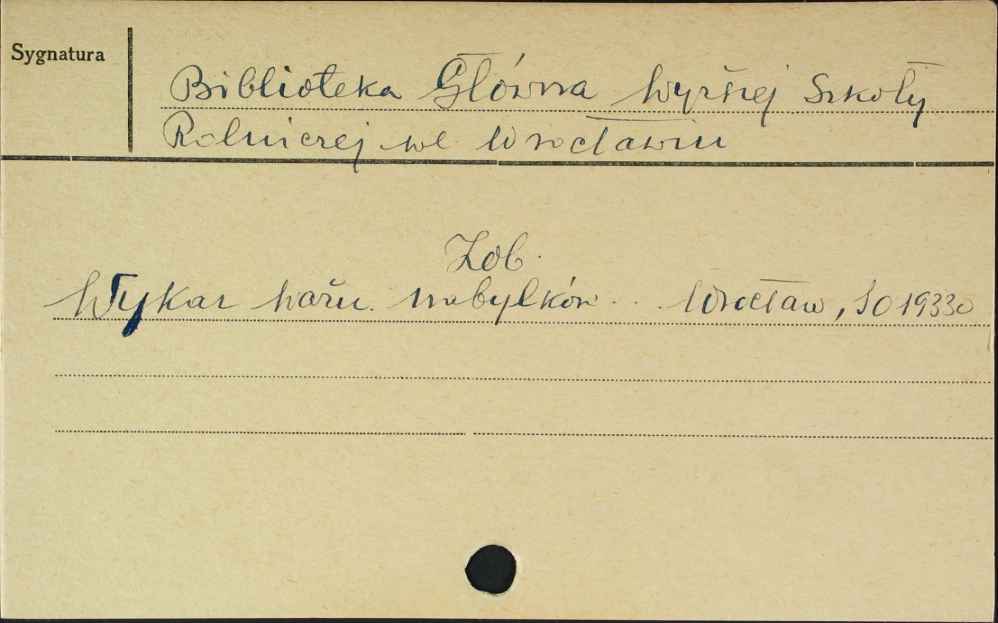 Sygnatura
Biblioteka Główna Wyższej Szkoły
Rolniczej we Wrocławiu
Zob.
Wykaz ważn. nabytków .. Wrocław, SO 19330